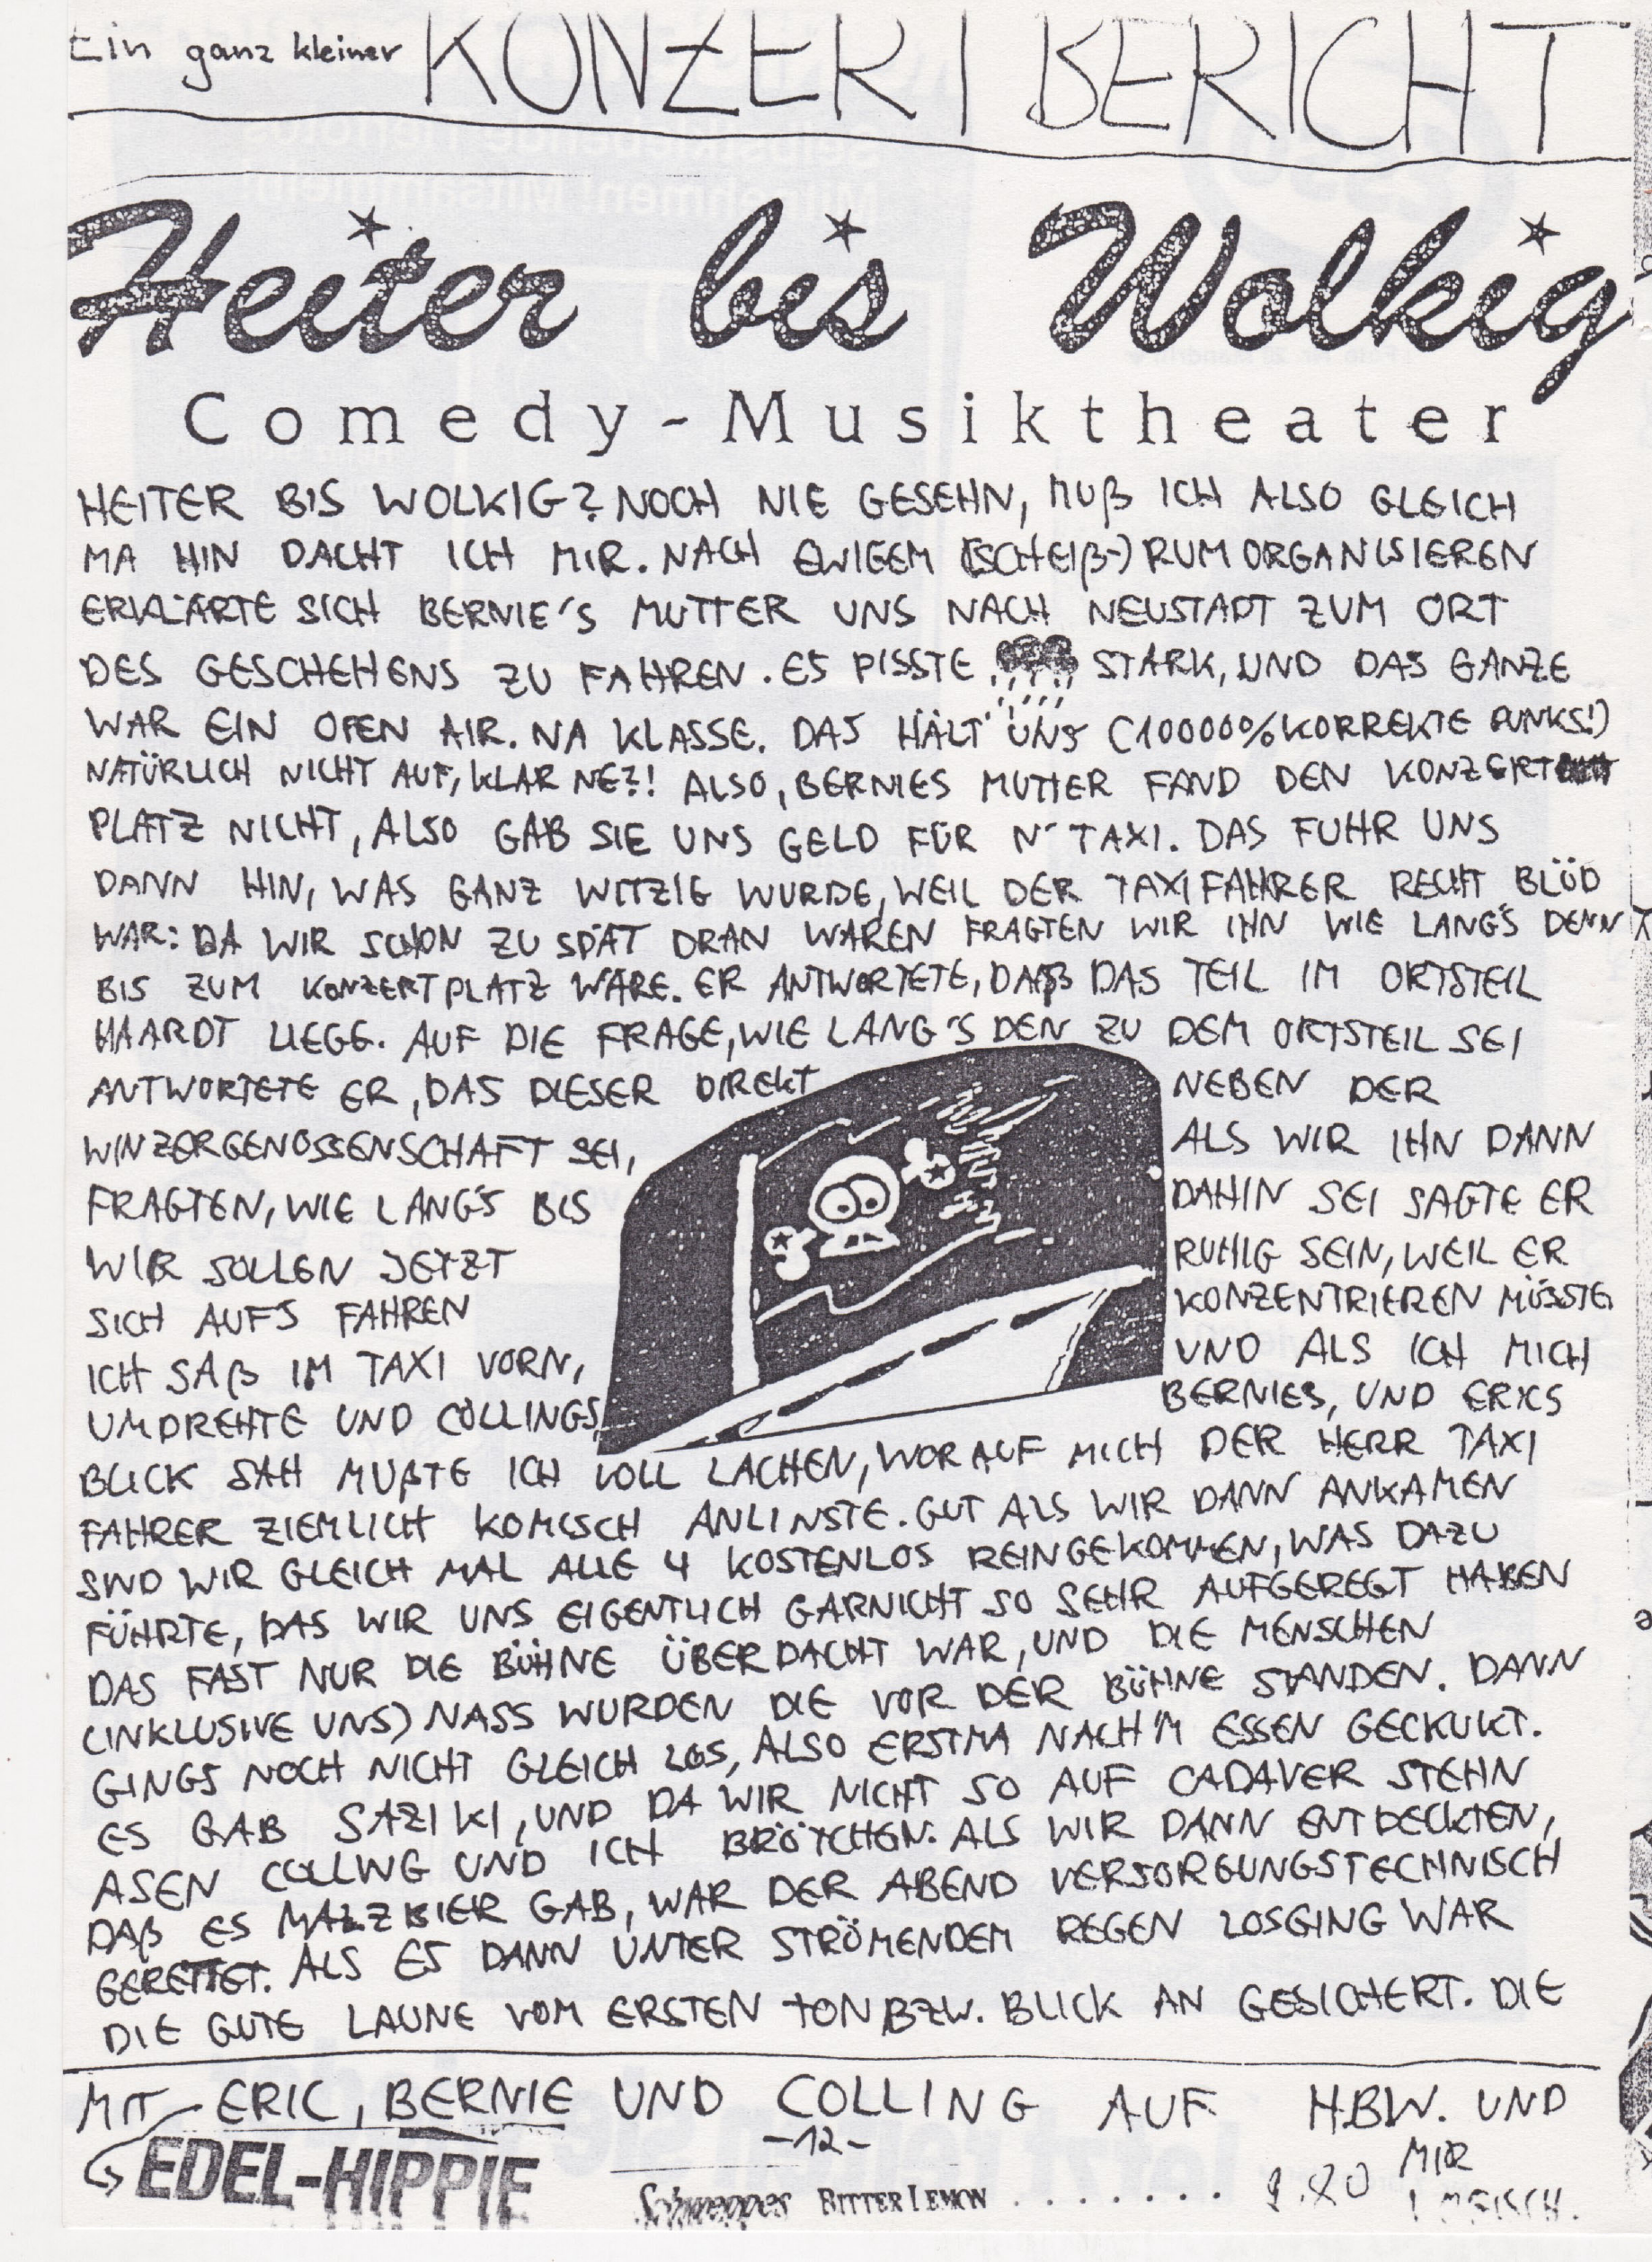 Ein ganz kleiner KONZERT BERICHT
Heiter bis Wolkig
Comedy-Musiktheater
HEITER BIS WOLKIG? NOCH NIE GESEHN, MUß ICH ALSO GLEICH
MA HIN DACHT ICH MIR. NACH EWIGEM (SCHEIß-) RUMORGANISIEREN
ERKLÄRTE SICH BERNIE'S MUTTER UNS NACH NEUSTADT ZUM ORT
DES GESCHEHENS ZU FAHREN. ES PISSTE STARK, UND DAS GANZE
WAR EIN OPEN AIR. NA KLASSE. DAS HÄLT UNS (10000% KORREKTE PUNKS!)
NATÜRLICH NICHT AUF, KLAR NE?! ALSO, BERNIES MUTTER FAND DEN KONZERT
PLATZ NICHT, ALSO GAB SIE UNS GELD FÜR N' TAXI. DAS FUHR UNS
DANN HIN, WAS GANZ WITZIG WURDE, WEIL DER TAXIFAHRER RECHT BLÖD
WAR: DA WIR SCHON ZU SPÄT DRAN WAREN FRAGTEN WIR IHN WIE LANG'S DENN
BIS ZUM KONZERTPLATZ WÄRE. ER ANTWORTETE, DAß DAS TEIL IM ORTSTEIL
HAARDT LIEGE. AUF DIE FRAGE, WIE LANG'S DEN ZU DEM ORTSTEIL SEI
ANTWORTETE ER, DAS DIESER DIREKT NEBEN DER
WINZERGENOSSENSCHAFT SEI, ALS WIR IHN DANN
FRAGTEN, WIE LANG'S BIS DAHIN SEI SAGTE ER
WIR SOLLEN JETZT RUHIG SEIN, WEIL ER
SICH AUFS FAHREN KONZENTRIEREN MÜSSTE
ICH SAß IM TAXI VORN, UND ALS ICH MICH
UMDREHTE UND COLLINGS, BERNIES, UND ERICS
BLICK SAH MUßTE ICH VOLL LACHEN, WORAUF MICH DER HERR TAXI
FAHRER ZIEMLICH KOMISCH ANLINSTE. GUT ALS WIR DANN ANKAMEN
SIND WIR GLEICH MAL ALLE 4 KOSTENLOS REINGEKOMMEN, WAS DAZU
FÜHRTE, DAS WIR UNS EIGENTLICH GARNICHT SO SEHR AUFGEREGT HABEN
DAS FAST NUR DIE BÜHNE ÜBERDACHT WAR, UND DIE MENSCHEN
(INKLUSIVE UNS) NASS WURDEN DIE VOR DER BÜHNE STANDEN. DANN
GINGS NOCH NICHT GLEICH LOS, ALSO ERSTMA NACH'M ESSEN GECKUKT.
ES GAB SAZIKI, UND DA WIR NICHT SO AUF CADAVER STEHN
ASEN COLLING UND ICH BRÖTCHEN. ALS WIR DANN ENTDECKTEN,
DAß ES MALZBIER GAB, WAR DER ABEND VERSORGUNGSTECHNISCH
GERETTET. ALS ES DANN UNTER STRÖMENDEM REGEN LOSGING WAR
DIE GUTE LAUNE VOM ERSTEN TON BZW. BLICK AN GESICHERT. DIE
MIT ERIC, BERNIE UND COLLING AUF H.B.W. UND
MIR
-12-
EDEL-HIPPIE
Schweppes BITTER LEMON . . . . . . . .